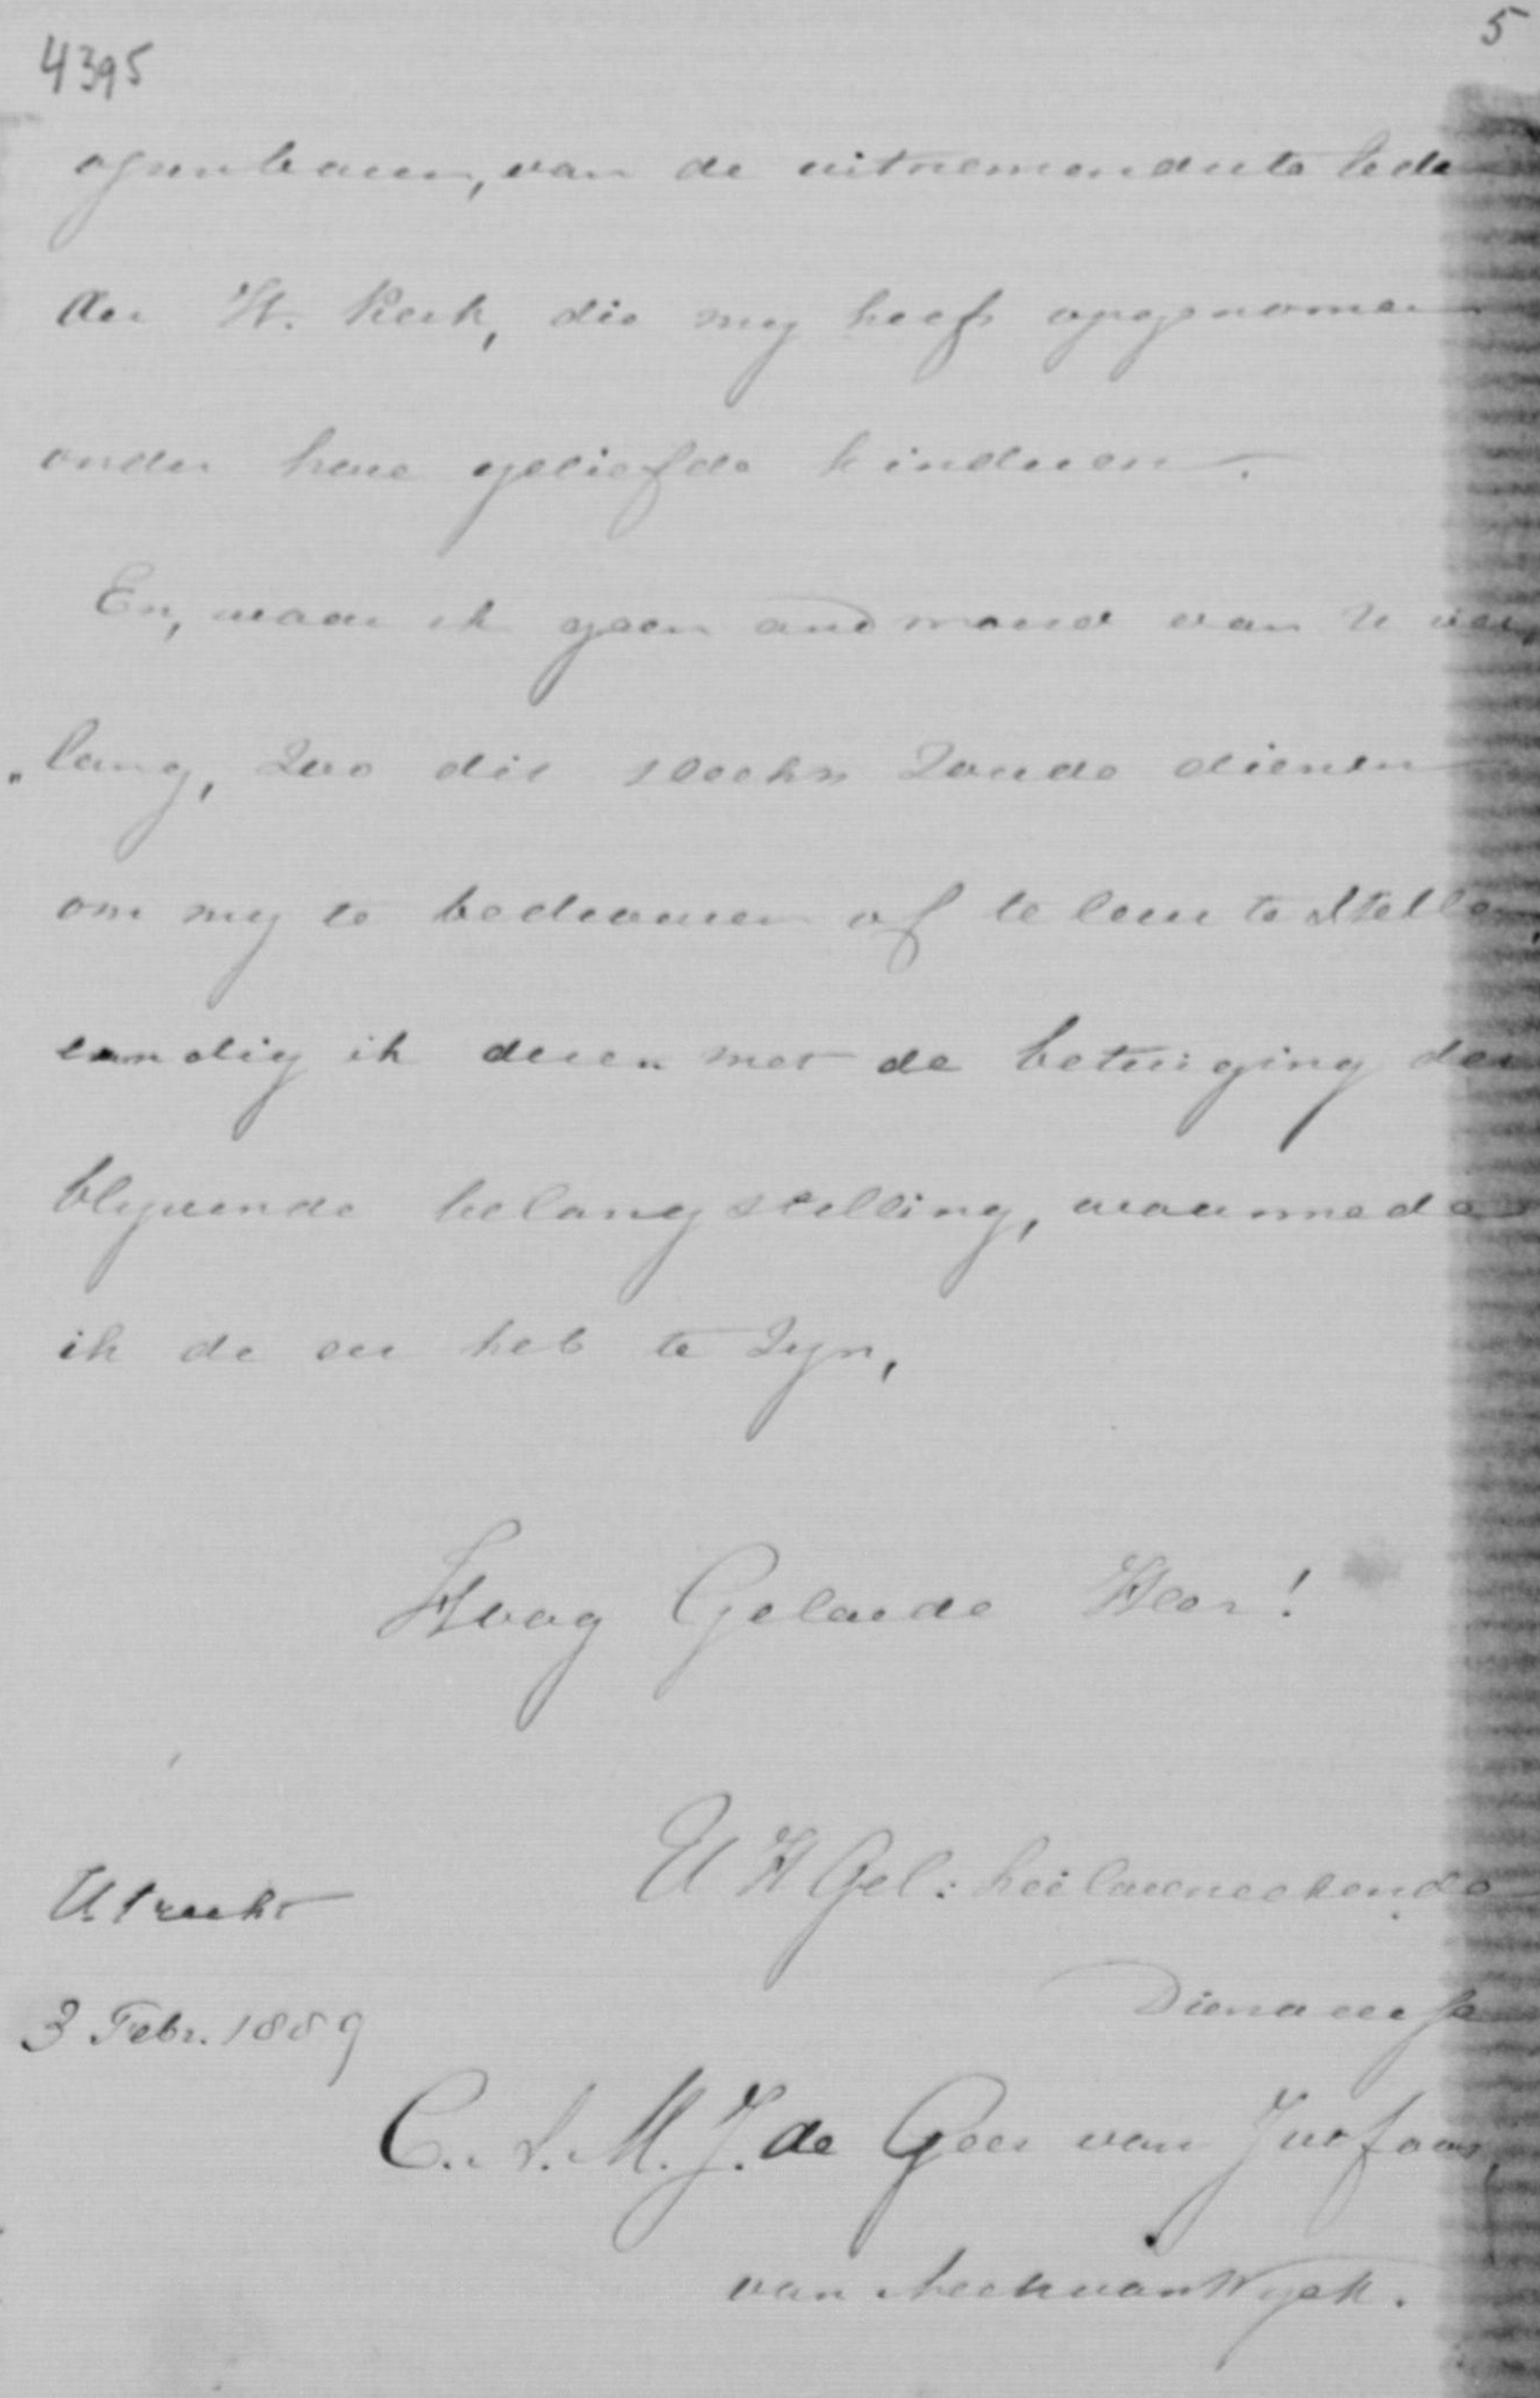 4395
5
openbaren, van de uitnemendste lede
der H. Kerk, die my heeft opgenomen
onder hare geliefde kinderen.
En, waar ik geen andwoord van U ver„
„lang, zoo dit slechts zoude dienen
om my te bedroeven of te leur te stellen,
eindig ik deze met de betuiging der
blyvende belangstelling, waarmede
ik de eer heb te zyn,
Hoog Gelaerde Heer!
U H Gel: heilwenschende
Utrecht
Dienaresse
3 Febr. 1889
C. L. M. J. de Geer van Jutfaas,
van Beeck van Wyck.